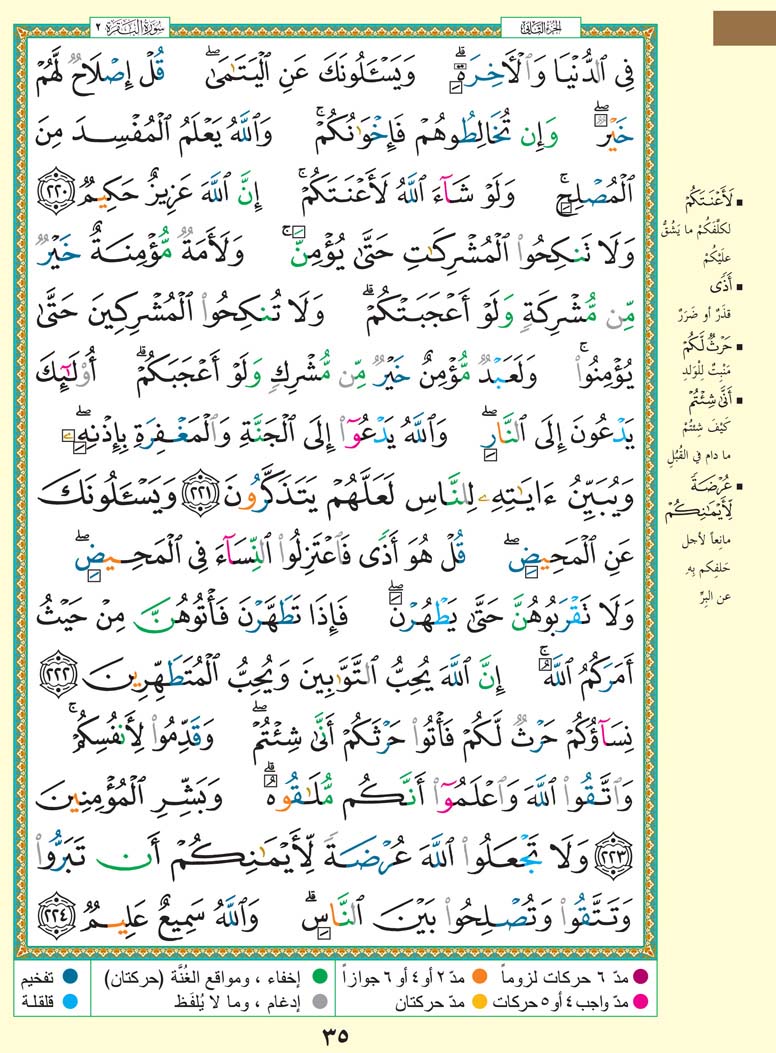 سُورَةُ البَقَرَة ٢
الجُزءُ الثَّانِي
فِي ٱلدُّنْيَا وَٱلْأَخِرَةِ ۗ وَيَسْـَٔلُونَكَ عَنِ ٱلْيَتَـٰمَىٰ ۖ قُلْ إِصْلَاحٌ لَّهُمْ
خَيْرٌ ۖ وَإِن تُخَالِطُوهُمْ فَإِخْوَٰنُكُمْ ۚ وَٱللَّهُ يَعْلَمُ ٱلْمُفْسِدَ مِنَ
ٱلْمُصْلِحِ ۚ وَلَوْ شَآءَ ٱللَّهُ لَأَعْنَتَكُمْ ۚ إِنَّ ٱللَّهَ عَزِيزٌ حَكِيمٌ ٢٢٠
وَلَا تَنكِحُوا۟ ٱلْمُشْرِكَـٰتِ حَتَّىٰ يُؤْمِنَّ ۚ وَلَأَمَةٌ مُّؤْمِنَةٌ خَيْرٌ
مِّن مُّشْرِكَةٍ وَلَوْ أَعْجَبَتْكُمْ ۗ وَلَا تُنكِحُوا۟ ٱلْمُشْرِكِينَ حَتَّىٰ
يُؤْمِنُوا۟ ۚ وَلَعَبْدٌ مُّؤْمِنٌ خَيْرٌ مِّن مُّشْرِكٍ وَلَوْ أَعْجَبَكُمْ ۗ أُو۟لَـٰٓئِكَ
يَدْعُونَ إِلَى ٱلنَّارِ ۖ وَٱللَّهُ يَدْعُوٓا۟ إِلَى ٱلْجَنَّةِ وَٱلْمَغْفِرَةِ بِإِذْنِهِۦ ۖ
وَيُبَيِّنُ ءَايَـٰتِهِۦ لِلنَّاسِ لَعَلَّهُمْ يَتَذَكَّرُونَ ٢٢١ وَيَسْـَٔلُونَكَ
عَنِ ٱلْمَحِيضِ ۖ قُلْ هُوَ أَذًى فَٱعْتَزِلُوا۟ ٱلنِّسَآءَ فِي ٱلْمَحِيضِ ۖ
وَلَا تَقْرَبُوهُنَّ حَتَّىٰ يَطْهُرْنَ ۖ فَإِذَا تَطَهَّرْنَ فَأْتُوهُنَّ مِنْ حَيْثُ
أَمَرَكُمُ ٱللَّهُ ۚ إِنَّ ٱللَّهَ يُحِبُّ ٱلتَّوَّٰبِينَ وَيُحِبُّ ٱلْمُتَطَهِّرِينَ ٢٢٢
نِسَآؤُكُمْ حَرْثٌ لَّكُمْ فَأْتُوا۟ حَرْثَكُمْ أَنَّىٰ شِئْتُمْ ۖ وَقَدِّمُوا۟ لِأَنفُسِكُمْ ۚ
وَٱتَّقُوا۟ ٱللَّهَ وَٱعْلَمُوٓا۟ أَنَّكُم مُّلَـٰقُوهُ ۗ وَبَشِّرِ ٱلْمُؤْمِنِينَ
٢٢٣ وَلَا تَجْعَلُوا۟ ٱللَّهَ عُرْضَةً لِّأَيْمَـٰنِكُمْ أَن تَبَرُّوا۟
وَتَتَّقُوا۟ وَتُصْلِحُوا۟ بَيْنَ ٱلنَّاسِ ۗ وَٱللَّهُ سَمِيعٌ عَلِيمٌ ٢٢٤
لَأَعْنَتَكُمْ
لكلَّفَكُمْ ما يَشُقُّ
عليْكُمْ
أَذًى
قذَرٌ أو ضَرَرٌ
حَرْثٌ لَّكُمْ
مَنْبِتٌ لِلْوَلَدِ
أَنَّىٰ شِئْتُمْ
كَيْفَ شِئتُمْ
ما دام في القُبُلِ
عُرْضَةً
لِّأَيْمَـٰنِكُمْ
مانِعاً لأجل
حَلفِكم بِهِ
عن البِرِّ
مدّ ٦ حركات لزوماً مدّ ٢ أو ٤ أو ٦ جوازاً إخفاء ، ومواقع الغُنَّة (حركتان) تفخيم
مدّ واجب ٤ أو ٥ حركات مدّ حركتان إدغام ، وما لا يُلفَظ قلقلة
٣٥